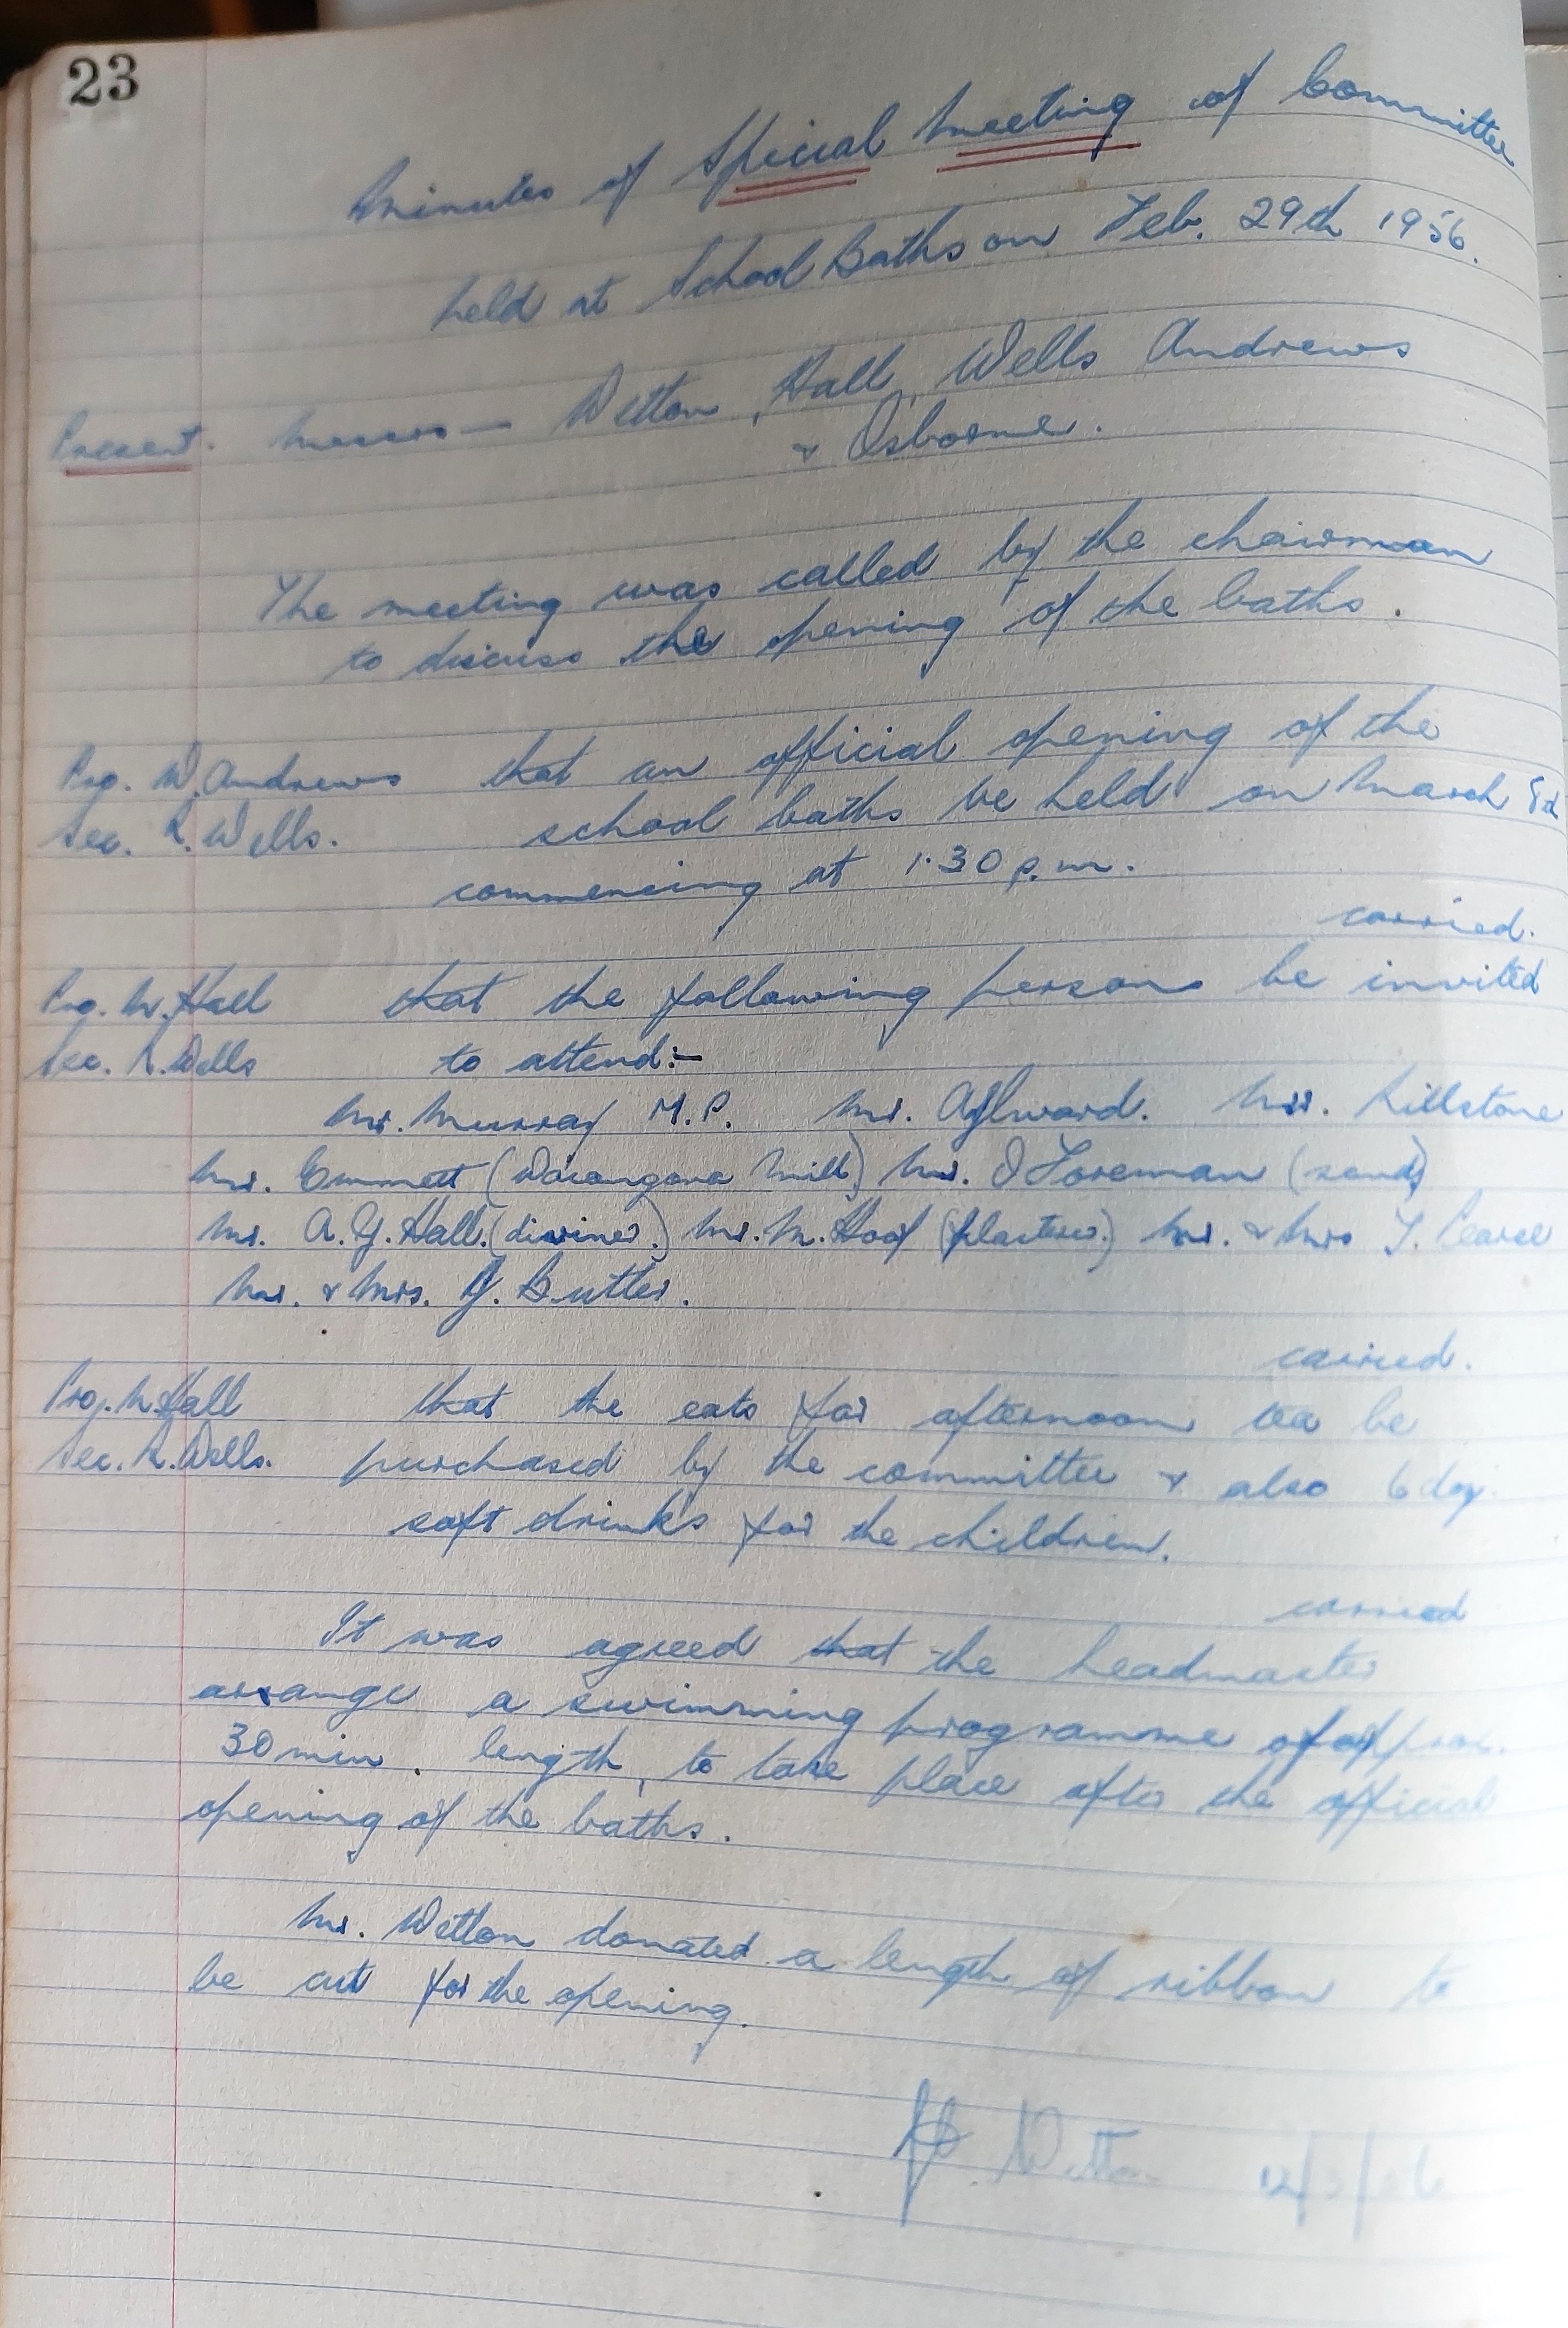 23
Minutes of Special Meeting of Committee
held at School Baths on Feb. 29th 1956.
Present. Messrs — Wetton, Hall, Wells Andrews
& Osborne.
The meeting was called by the chairman
to discuss the opening of the baths.
Pro. W. Andrews that an official opening of the
Sec. R. Wells. school baths be held on March
commencing at 1.30 p.m.
carried.
Pro. W. Hall that the following persons be invited
Sec. R. Wells to attend:-
Mr. Murray M.P. Mr. Aylward. Mr. Killstone
Mr. Emmett (Warangana Mill) Mr. Foreman (sand)
Mr. A. G. Hall. (diviner.) Mr. M. Hoof (plasterer.) Mr. & Mrs Pearce
Mr. & Mrs. G. Butler.
carried.
Pro. W. Hall that the eats for afternoon tea be
Sec. R. Wells. purchased by the committee & also 6 doz.
soft drinks for the children.
carried
It was agreed that the headmaster
arrange a swimming programme of approx.
30 min. length, to take place after the official
opening of the baths.
Mr. Wetton donated a length of ribbon to
be cut for the opening.
Wetton 12/3/56